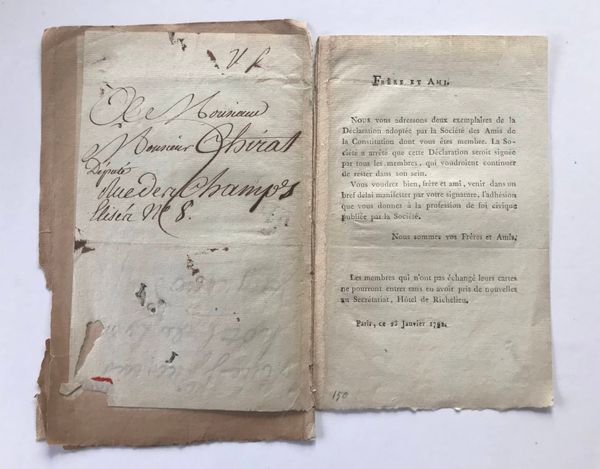 A Monsieur
Monsieur Chirat
Député
Rue des Champs
Elisés N° 8.
FRÈRE ET AMI,
Nous vous adressons deux exemplaires de la
Déclaration adoptée par la Société des Amis de
la Constitution dont vous êtes membre. La So-
ciété a arrêté que cette Déclaration seroit signée
par tous les membres, qui voudroient continuer
de rester dans son sein.
Vous voudrez bien, frère et ami, venir dans un
bref delai manifester par votre signature, l'adhésion
que vous donnez à la profession de foi civique
publiée par la Société.
Nous sommes vos Frères et Amis,
Les membres qui n'ont pas échangé leurs cartes
ne pourront entrer sans en avoir pris de nouvelles
au Secrétariat, Hôtel de Richelieu.
Paris, ce 23 Janvier 1792.
150